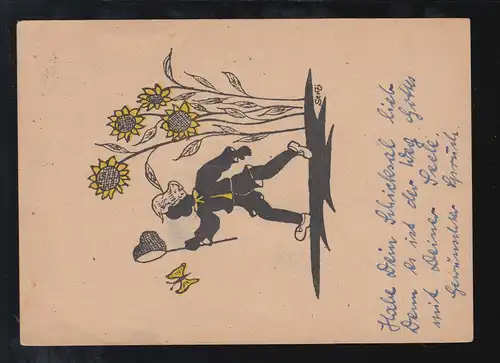 Serb
Habe Dein Schicksal lieb
Denn es ist der Weg Gottes
mit Deiner Seele.
Gewünschter Spruch.